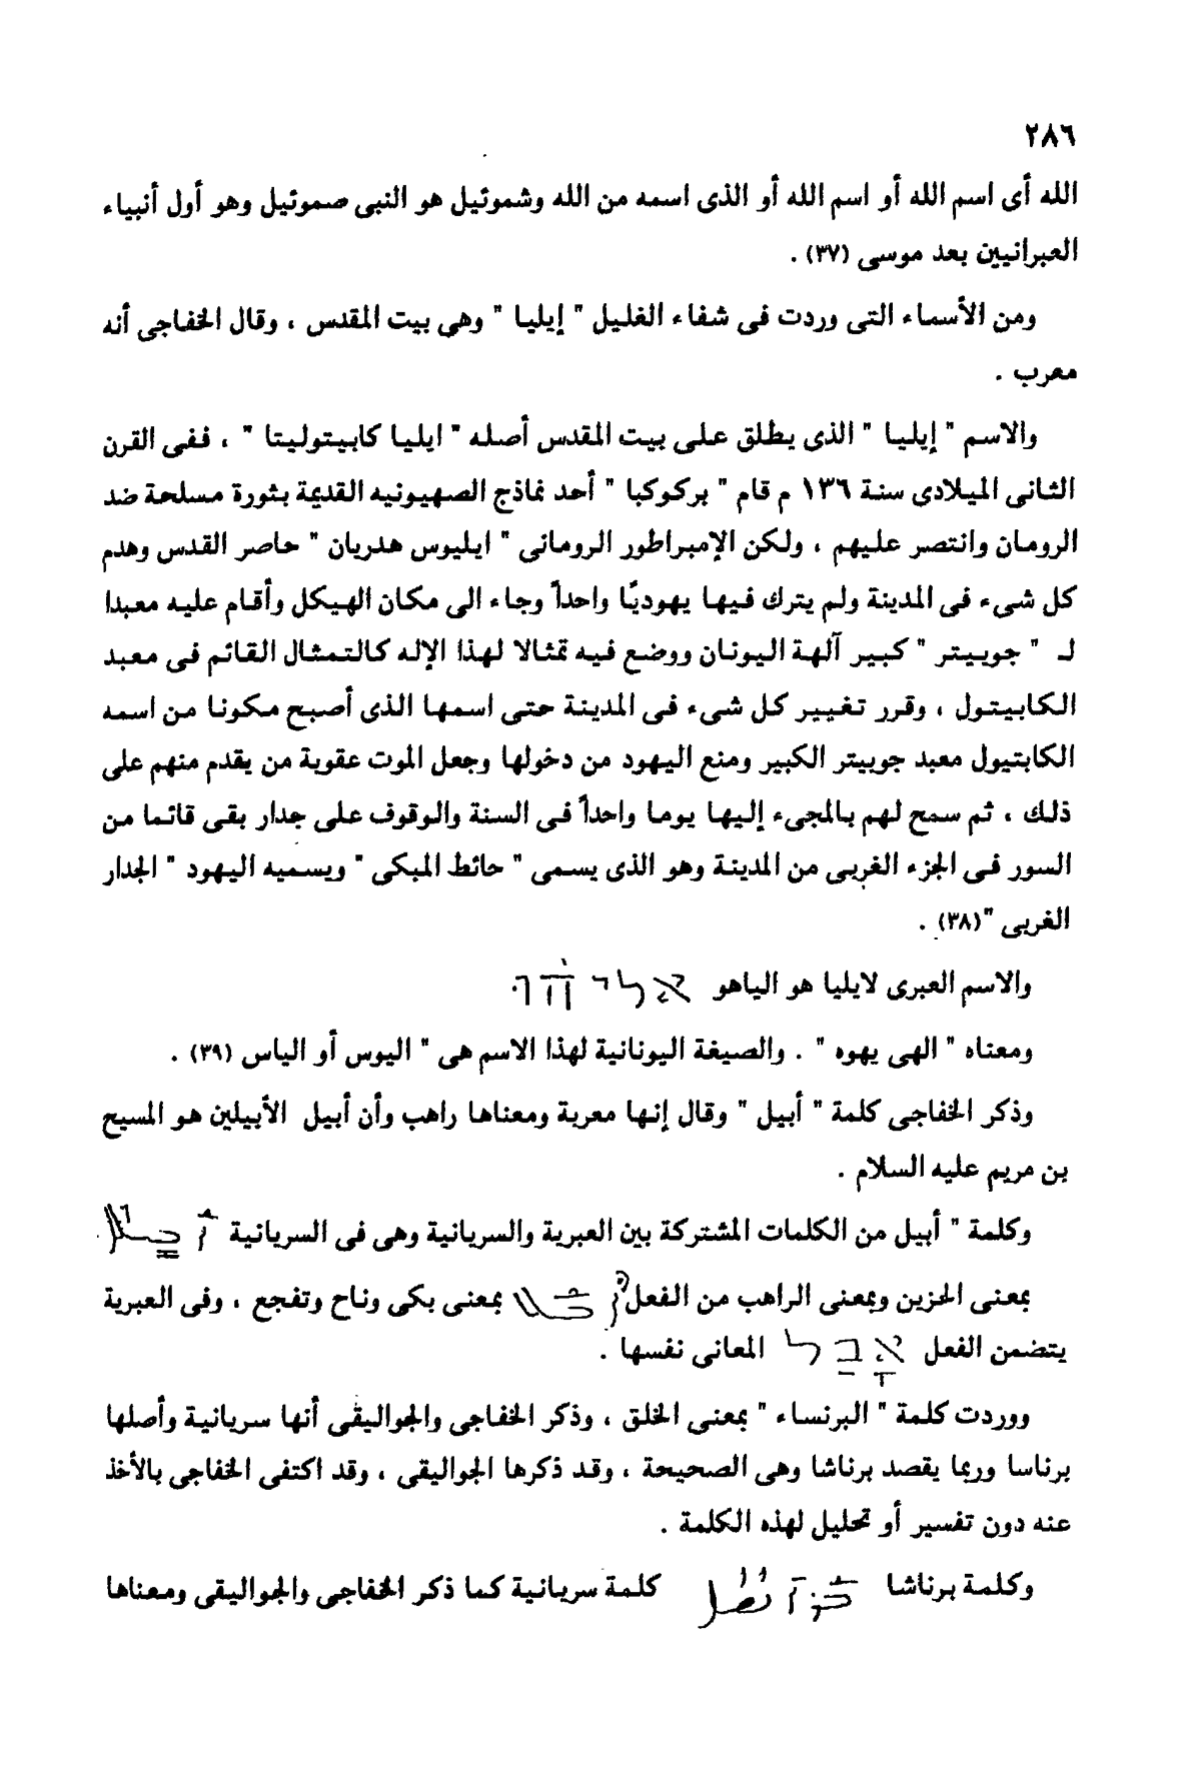 ٢٨٦
الله أى اسم الله أو اسم الله أو الذى اسمه من الله وشموئيل هو النبى صموئيل وهو أول أنبياء
العبرانيين بعد موسى (٣٧) .
ومن الأسماء التى وردت فى شفاء الغليل " إيليا " وهى بيت المقدس ، وقال الخفاجى أنه
معرب .
والاسم " إيليا " الذى يطلق على بيت المقدس أصله " ايليا كابيتوليتا " ، ففى القرن
الثانى الميلادى سنة ١٣٦ م قام " بركوكبا " أحد نماذج الصهيونيه القديمة بثورة مسلحة ضد
الرومان وانتصر عليهم ، ولكن الإمبراطور الرومانى " ايليوس هدريان " حاصر القدس وهدم
كل شىء فى المدينة ولم يترك فيها يهوديًا واحداً وجاء الى مكان الهيكل وأقام عليه معبدا
لـ " جوبيتر " كبير آلهة اليونان ووضع فيه تمثالا لهذا الإله كالتمثال القائم فى معبد
الكابيتول ، وقرر تغيير كل شىء فى المدينة حتى اسمها الذى أصبح مكونا من اسمه
الكابتيول معبد جوبيتر الكبير ومنع اليهود من دخولها وجعل الموت عقوبة من يقدم منهم على
ذلك ، ثم سمح لهم بالمجىء إليها يوما واحداً فى السنة والوقوف على جدار بقى قائما من
السور فى الجزء الغربى من المدينة وهو الذى يسمى " حائط المبكى " ويسميه اليهود " الجدار
الغربى "(٣٨) .
والاسم العبرى لايليا هو الياهو אליהו
ومعناه " الهى يهوه " . والصيغة اليونانية لهذا الاسم هى " اليوس أو الياس (٣٩) .
وذكر الخفاجى كلمة " أبيل " وقال إنها معربة ومعناها راهب وأن أبيل الأبيلين هو المسيح
بن مريم عليه السلام .
وكلمة " أبيل من الكلمات المشتركة بين العبرية والسريانية وهى فى السريانية
بمعنى الحزين وبمعنى الراهب من الفعل بمعنى بكى وناح وتفجع ، وفى العبرية
يتضمن الفعل אָבַל المعانى نفسها .
ووردت كلمة " البرنساء " بمعنى الخلق ، وذكر الخفاجى والجواليقى أنها سريانية وأصلها
برناسا وربما يقصد برناشا وهى الصحيحة ، وقد ذكرها الجواليقى ، وقد اكتفى الخفاجى بالأخذ
عنه دون تفسير أو تحليل لهذه الكلمة .
وكلمة برناشا كلمة سريانية كما ذكر الخفاجى والجواليقى ومعناها